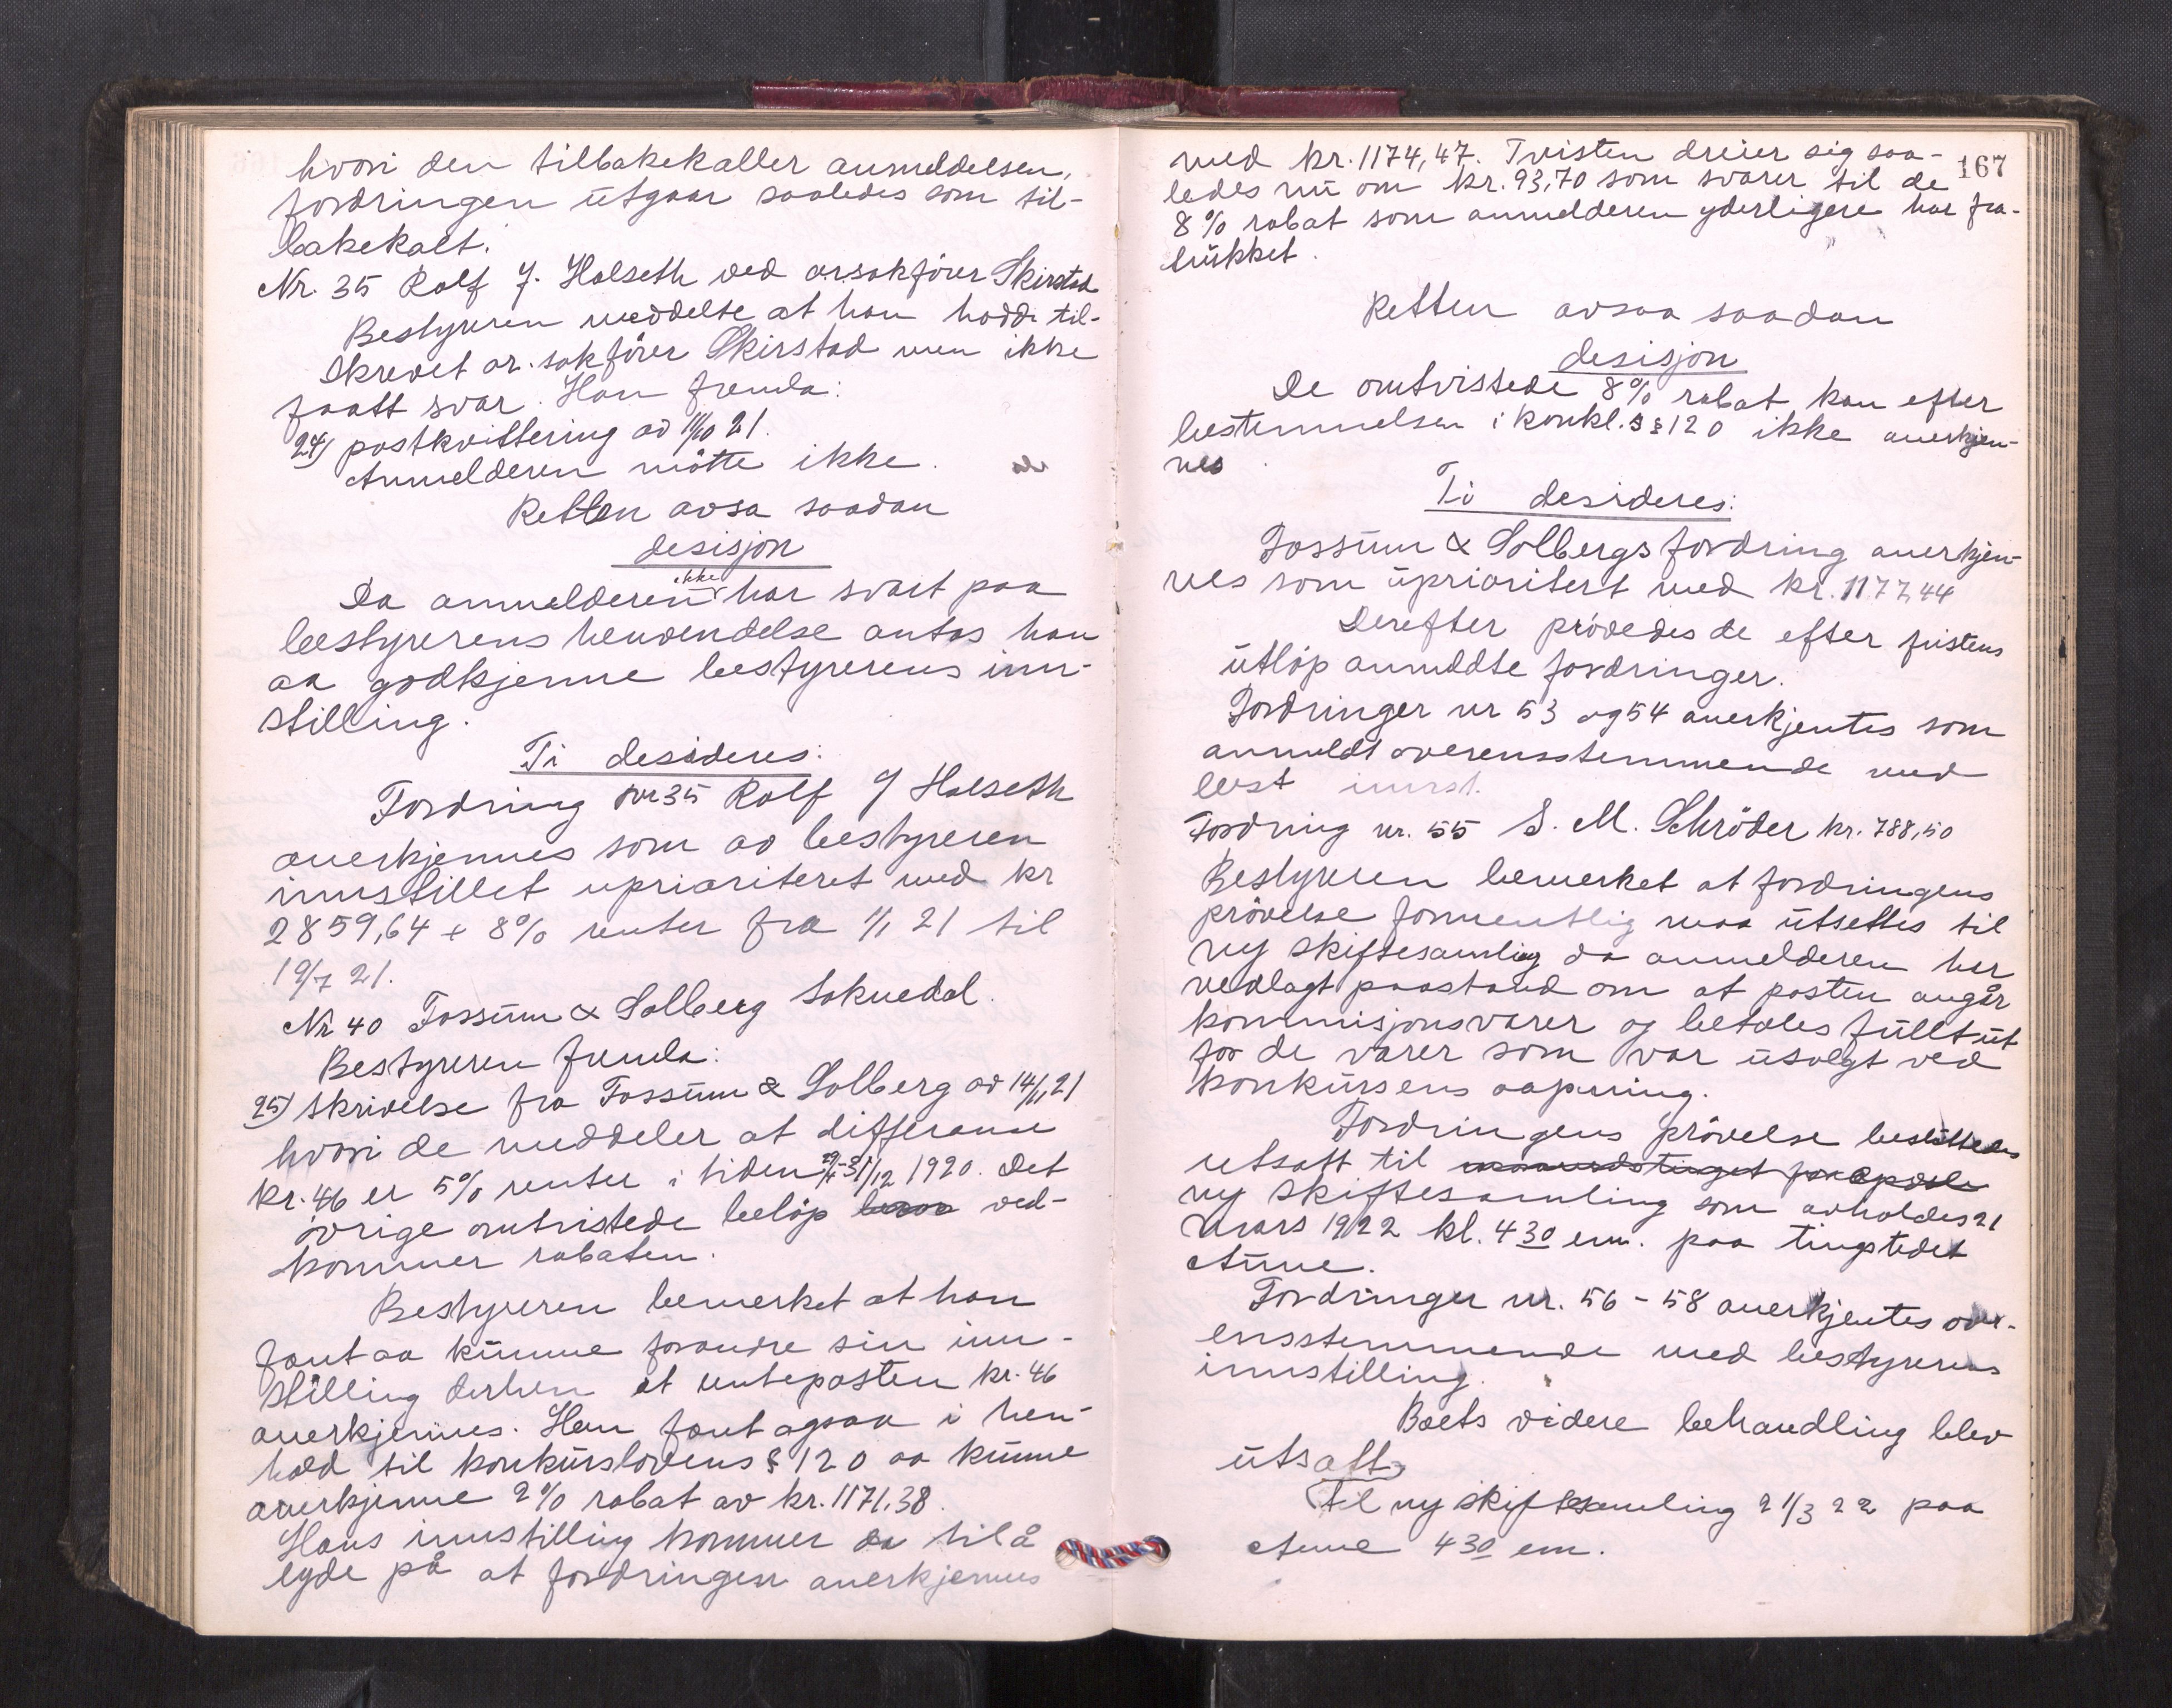 hvori den tilbakekaller anmeldelsen,
fordringen utgaar saaledes som til-
bakekalt.
Nr. 35 Rolf J. Halseth ved orsakfører Skirstad
Bestyreren meddelte at han hadde til-
skrevet or. sakfører Skirstad men ikke
faatt svar. Han fremla:
24) postkvittering av 11/10 21.
Anmelderen møtte ikke.
Retten avsa saadan
desisjon
Da anmelderen ikke har svart paa
bestyrerens henvendelse antas han
aa godkjenne bestyrerens inn-
stilling.
Ti desideres:
Fordring nr 35 Rolf J Halseth
anerkjennes som av bestyreren
innstillet uprioriteret med kr
2859,64 + 8% renter fra 1/1 21 til
19/7 21.
Nr 40 Fossum & Solberg Soknedal.
Bestyreren fremla:
25) skrivelse fra Fossum & Solberg av 14/11 21
hvori de meddeler at differanse
kr. 46 er 5% renter i tiden - 31/12 1920. Det
øvrige omtvistede beløp ved-
kommer rabaten.
Bestyreren bemerket at han
fant aa kunne forandre sin inn-
stilling derhen at renteposten kr. 46
anerkjennes. Han fant ogsaa i hen-
hold til konkurslovens § 120 aa kunne
anerkjenne 2% rabat av kr. 1171,38.
Hans innstilling kommer da til å
lyde på at fordringen anerkjennes
167
med kr. 1174,47. Tvisten dreier sig saa-
ledes nu om kr. 93,70 som svarer til de
8% rabat som anmelderen yderligere har fra-
trukket.
Retten avsaa saadan
desisjon
De omtvistede 8% rabat kan efter
bestemmelsen i konkl.s § 120 ikke anerkjen-
nes
Ti desideres:
Fossum & Solbergs fordring anerkjen-
nes som uprioritert med kr. 1177,44
Derefter prøvedes de efter fristens
utløp anmeldte fordringer.
Fordringer nr 53 og 54 anerkjentes som
anmeldt overensstemmende med
best innst.
Fordring nr. 55 S. M. Schrøder kr. 788,50
Bestyreren bemerket at fordringens
prøvelse formentlig maa utsettes til
ny skiftesamling da anmelderen har
vedlagt paastand om at posten angår
kommisjonsvarer og betales fullt ut
for de varer som var usolgt ved
konkursens aapning.
Fordringens prøvelse besluttedes
utsatt til maanedstinget for
ny skiftesamling som avholdes 21
mars 1922 kl. 4 30 em. paa tingstedet
Aune.
Fordringer nr. 56 - 58 anerkjentes over-
ensstemmende med bestyrerens
innstilling.
Boets videre behandling blev
utsatt
til ny skiftesamling 21/3 22 paa
Aune 4 30 em.